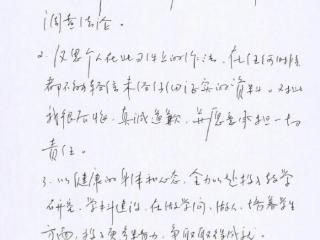 调查结论。
2. 反思个人在此事件上的作法,在任何时候
都不能轻信未经证实的资料。对此
我很后悔,真诚道歉,并愿意承担一切
责任。
3. 以健康的身体和心态,全力以赴投入教学
研究、学科建设,在做学问、做人、培养学生
方面,投入更多努力,争取取得成就。